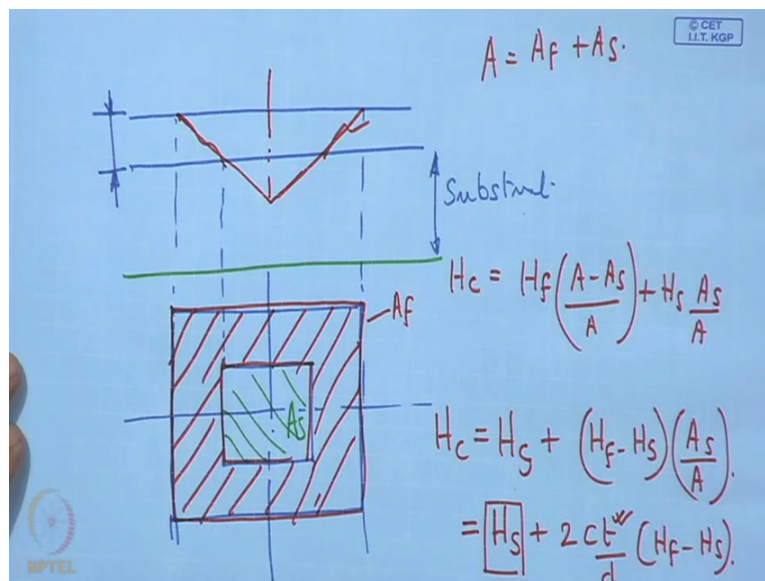 © CET
I.I.T. KGP
A = Af + As.
Substrat.
Hc = Hf (A - As / A) + Hs As / A
Af
As
Hc = Hs + (Hf - Hs) (As / A).
= Hs + 2 ct / d (Hf - Hs).
NPTEL